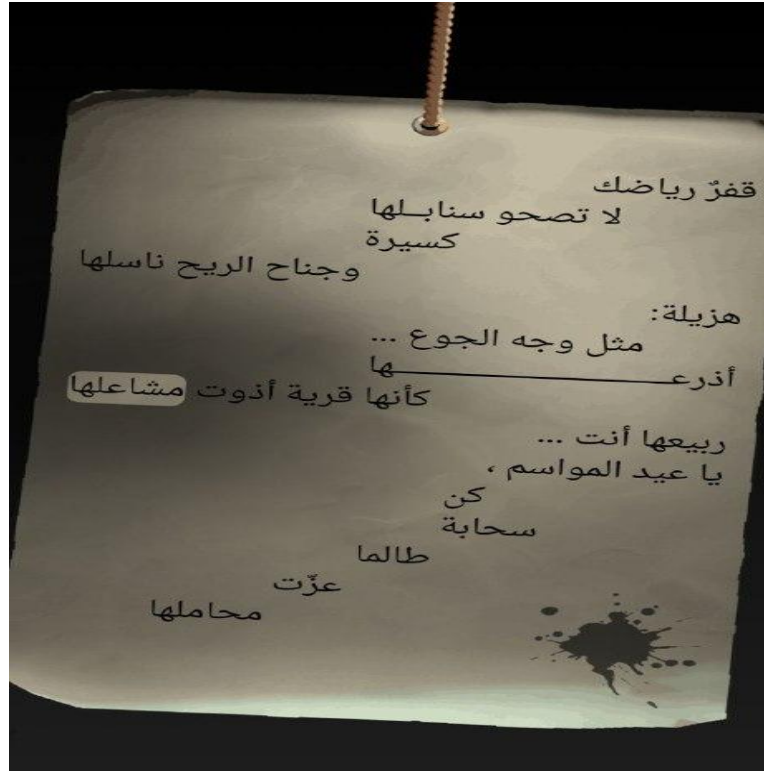 قفرٌ رياضك
لا تصحو سنابــلها
كسيرة
وجناح الريح ناسلها
هزيلة:
مثل وجه الجوع ...
أذرعــــــــــــــــــــها
كأنها قرية أذوت مشاعلها
ربيعها أنت ...
يا عيد المواسم ،
كن
سحابة
طالما
عزّت
محاملها